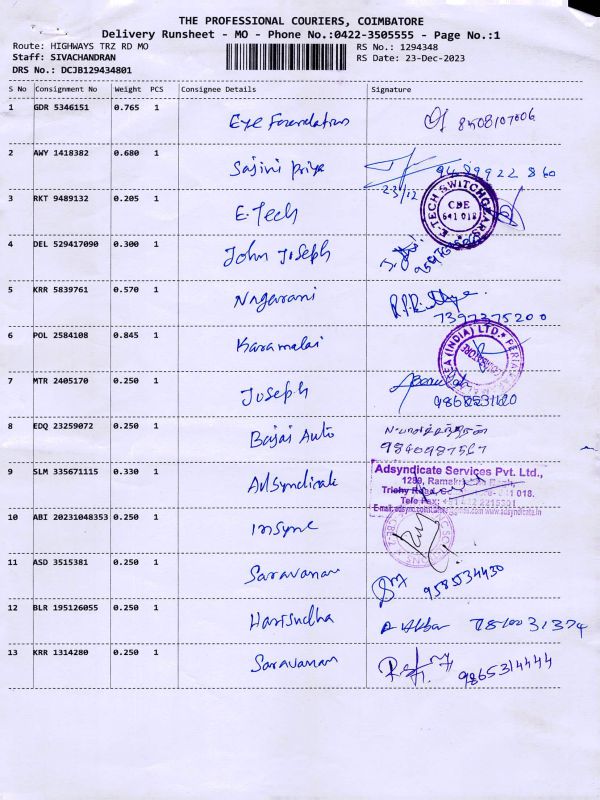 THE PROFESSIONAL COURIERS, COIMBATORE
Delivery Runsheet - MO - Phone No.:0422-3505555 - Page No.:1
Route: HIGHWAYS TRZ RD MO RS No.: 1294348
Staff: SIVACHANDRAN RS Date: 23-Dec-2023
DRS No.: DCJB129434801
S No Consignment No Weight PCS Consignee Details Signature
1 GDR 5346151 0.765 1 Eye Foundation 8508107006
2 AWY 1418382 0.680 1 Sajini priya 9489922860
23/12
3 RKT 9489132 0.205 1 E.Tech
E-TECH SWITCHGEARS
CBE
641 018
4 DEL 529417090 0.300 1 John Joseph
5 KRR 5839761 0.570 1 Nagarani
7397375200
6 POL 2584108 0.845 1 Karamalai
(INDIA) LTD.
7 MTR 2405170 0.250 1 Joseph
8 EDQ 23259072 0.250 1 Bajai Auto
9840987567
9 SLM 335671115 0.330 1 Adsyndicate
Adsyndicate Services Pvt. Ltd.,
Trichy Road,
10 ABI 20231048353 0.250 1 Insync
11 ASD 3515381 0.250 1 Saravanan
9585534430
12 BLR 195126055 0.250 1 Harisudha
13 KRR 1314280 0.250 1 Saravanan
9865314444